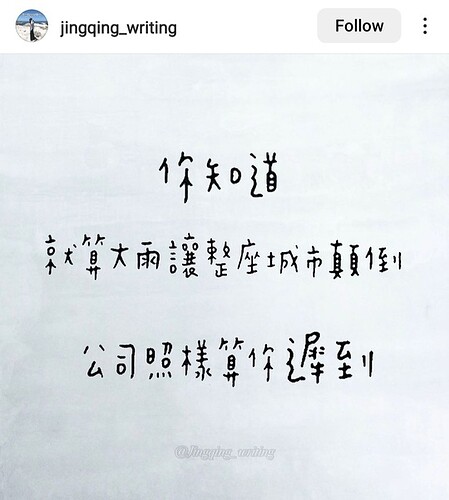 jingqing_writing
Follow
你知道
就算大雨讓整座城市顛倒
公司照樣算你遲到
@Jingqing_writing